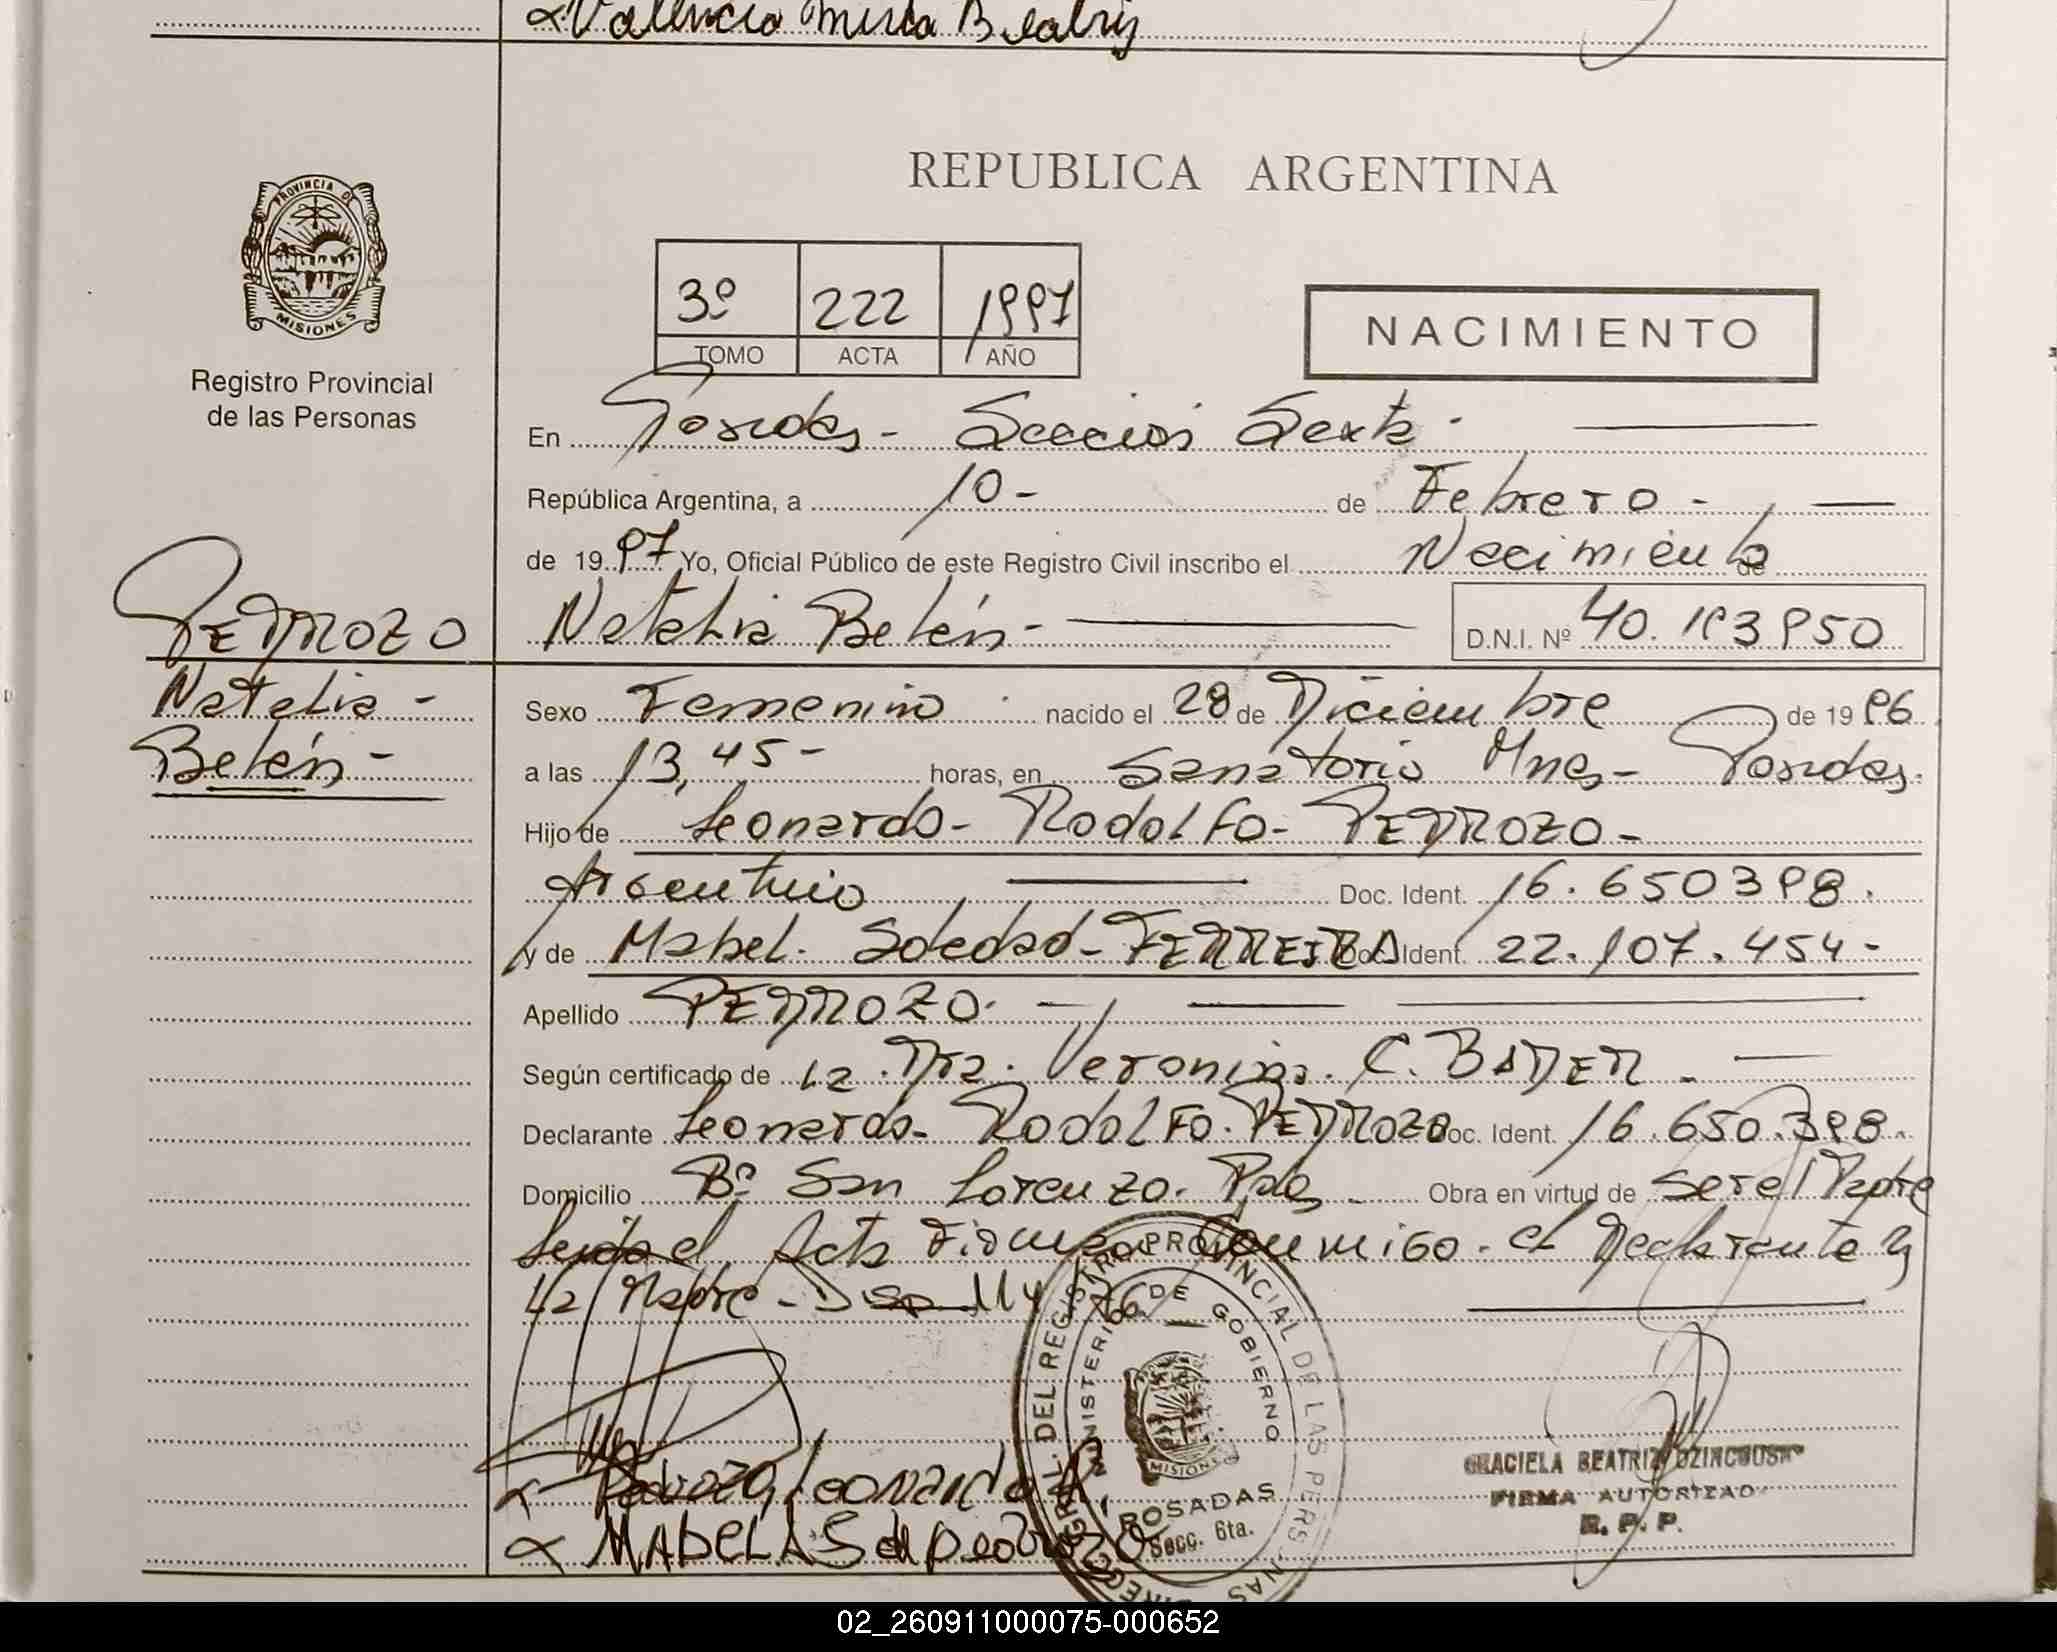 Valencia Mirta Beatriz
REPUBLICA ARGENTINA
PROVINCIA DE
MISIONES
Registro Provincial
de las Personas
3º 222 1997
TOMO ACTA AÑO
NACIMIENTO
En Posadas - Seccion Sexta -
República Argentina, a 10 - de Febrero -
de 1997 Yo, Oficial Público de este Registro Civil inscribo el Nacimiento de
PEDROZO Natalia Belén - D.N.I. Nº 40.193950
Natalia -
Belén -
Sexo Femenino nacido el 28 de Diciembre de 1996
a las 13,45 - horas, en Sanatorio Mnes - Posadas.
Hijo de Leonardo - Rodolfo - PEDROZO -
Argentino Doc. Ident. 16.650398.
y de Mabel. Soledad - FERREIRA Doc. Ident. 22.107.454 -
Apellido PEDROZO. -
Según certificado de La Dra. Veronica. C. BADER -
Declarante Leonardo - Rodolfo. PEDROZO Doc. Ident. 16.650.398.
Domicilio Bº San Lorenzo. Pdas - Obra en virtud de ser el Padre
Leida el Acta Firman Conmigo. el Declarante y
La Madre -
DEL REGISTRO PROVINCIAL DE LAS PERSONAS
MINISTERIO DE GOBIERNO
MISIONES
POSADAS
Secc. 6ta.
Pedrozo, Leonardo R.
MABEL S de Pedrozo
GRACIELA BEATRIZ
FIRMA AUTORIZAD
R. P. P.
02_260911000075-000652